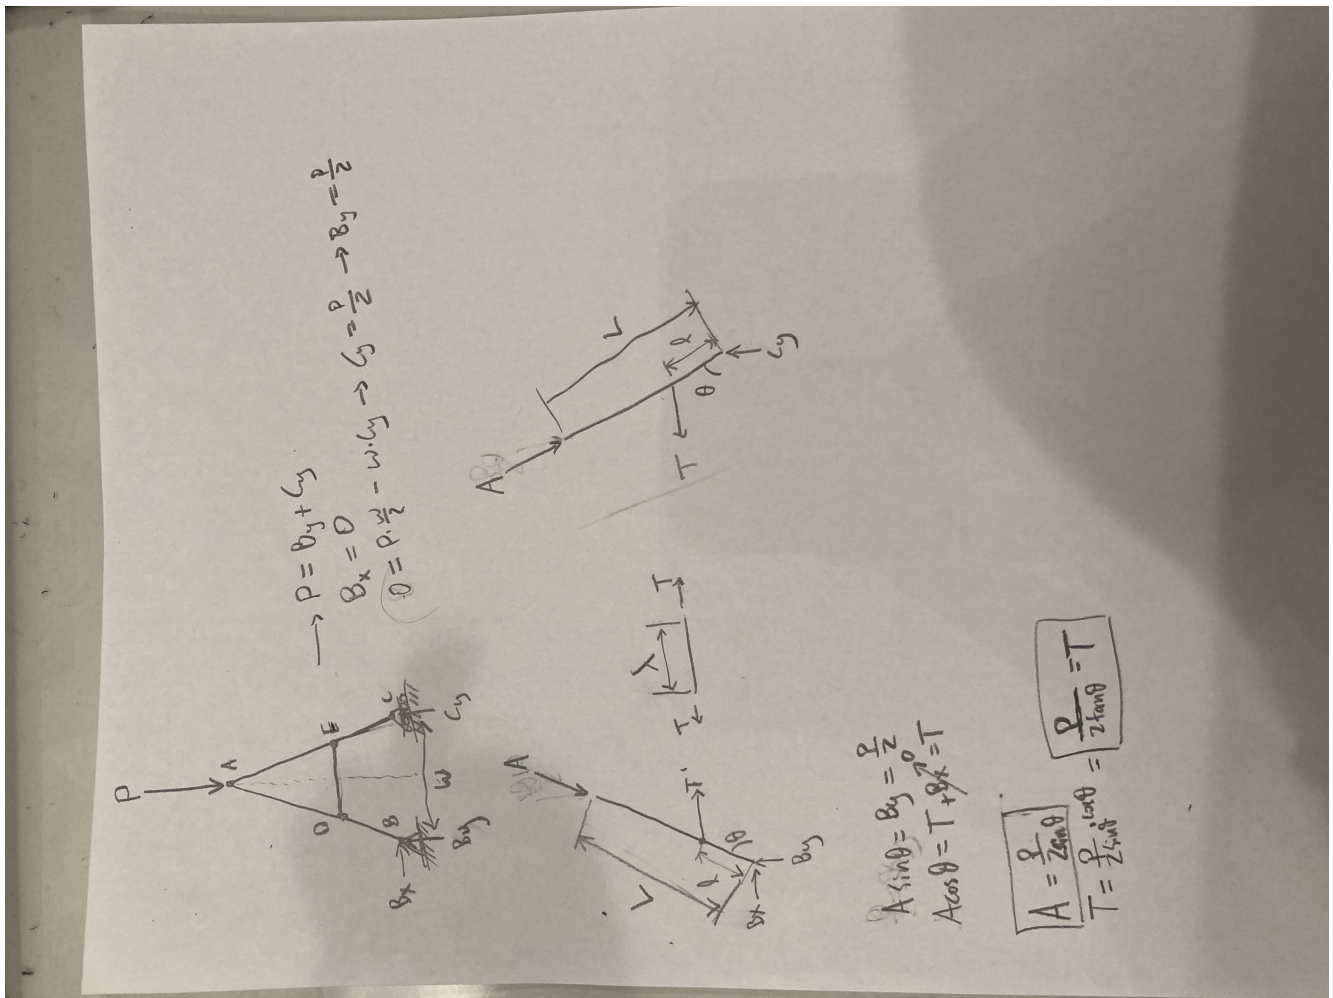 P
A
D
E
B
C
Bx
By
W
Cy
→ P = By + Cy
Bx = 0
0 = P·W/2 - W·Cy → Cy = P/2 → By = P/2
A
L
l
θ
T
Bx
By
T
λ
T
A
L
l
θ
T
Cy
A sinθ = By = P/2
A cosθ = T + Bx→0 = T
A = P/2sinθ
T = P/2sinθ · cosθ = P/2tanθ = T